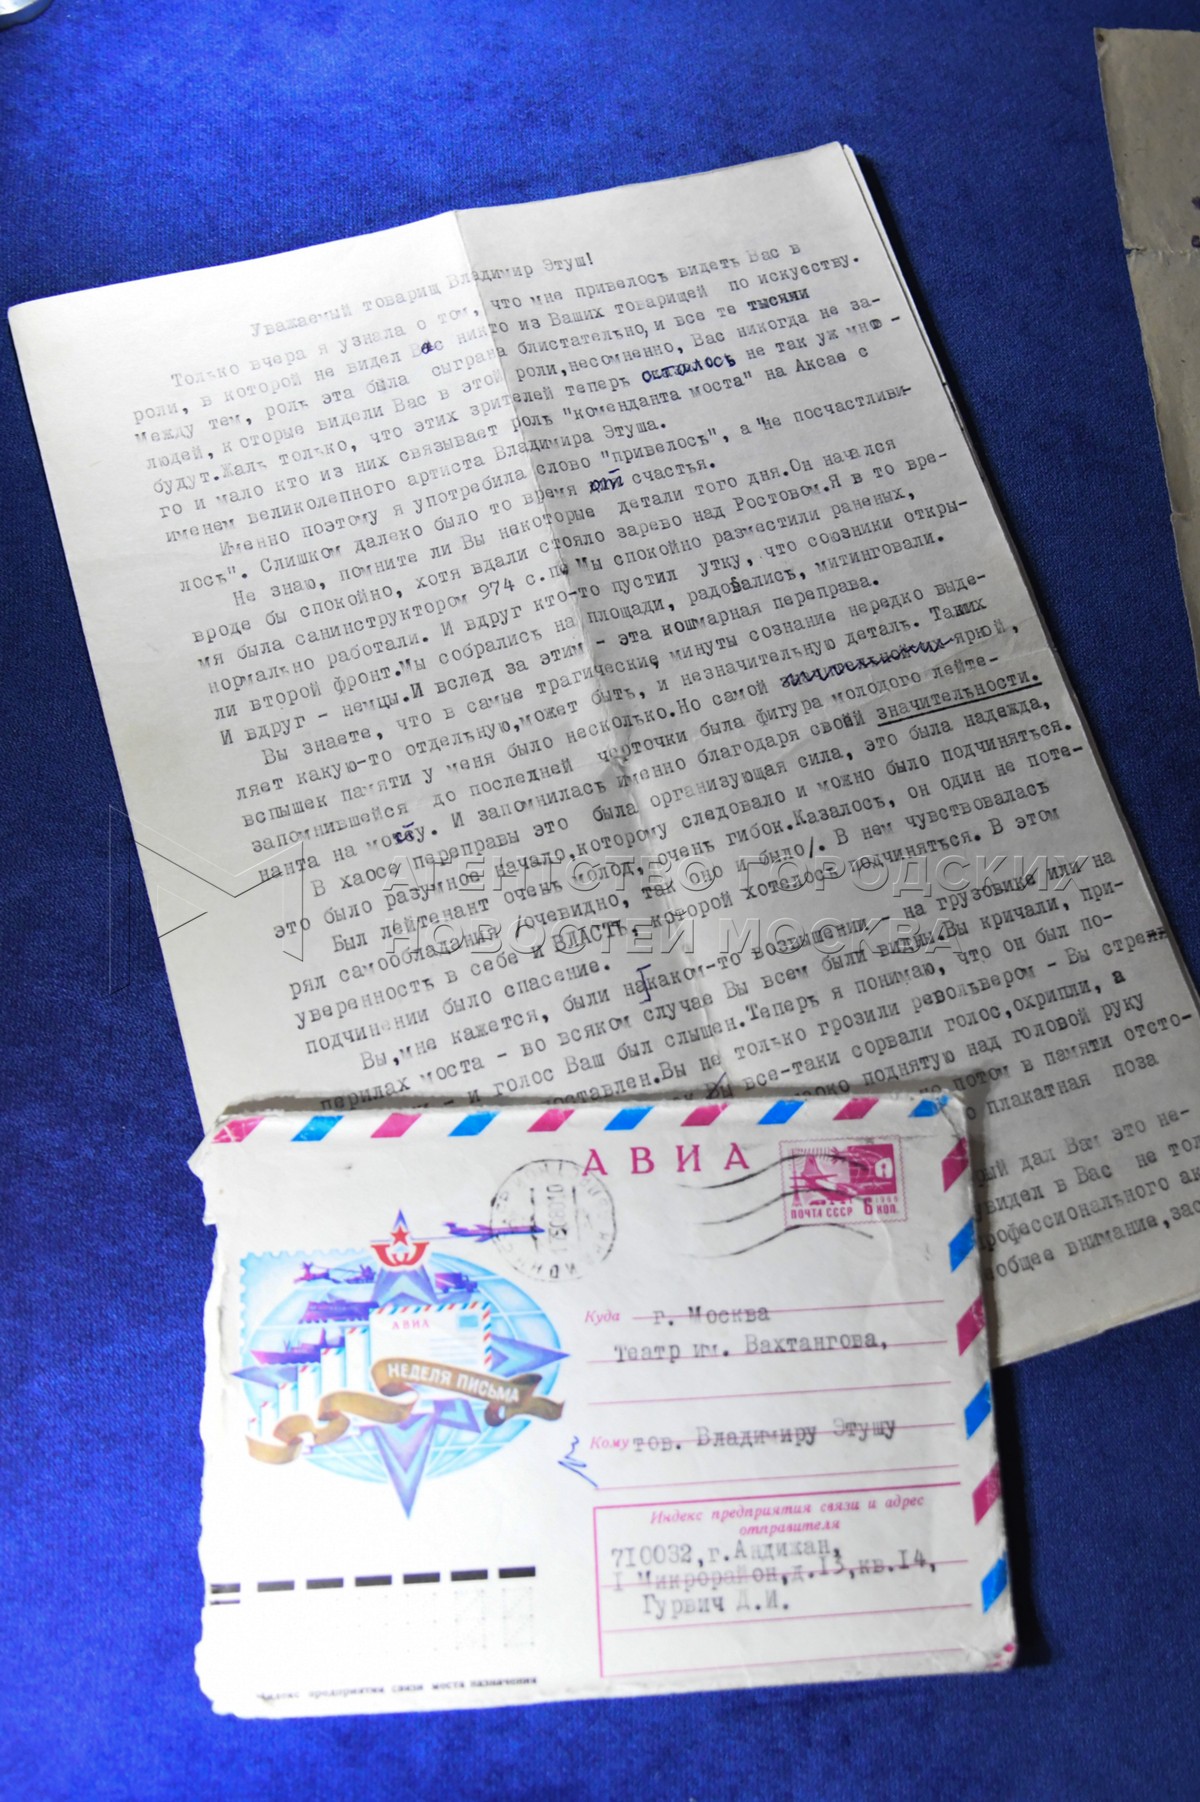 Уважаемый товарищ Владимир Этуш!
Только вчера я узнала о том, что мне привелось видеть Вас в
роли, в которой не видел Вас никто из Ваших товарищей по искусству.
Между тем, роль эта была сыграна блистательно, и все те тысячи
людей, которые видели Вас в этой роли, несомненно, Вас никогда не за-
будут. Жаль только, что этих зрителей теперь осталось не так уж мно-
го и мало кто из них связывает роль "коменданта моста" на Аксае с
именем великолепного артиста Владимира Этуша.
Именно поэтому я употребила слово "привелось", а "не посчастливи-
лось". Слишком далеко было то время от счастья.
Не знаю, помните ли Вы некоторые детали того дня. Он начался
вроде бы спокойно, хотя вдали стояло зарево над Ростовом. Я в то вре-
мя была санинструктором 974 с.п. Мы спокойно разместили раненых,
нормально работали. И вдруг кто-то пустил утку, что союзники откры-
ли второй фронт. Мы собрались на площади, радовались, митинговали.
И вдруг - немцы. И вслед за этим - эта кошмарная переправа.
Вы знаете, что в самые трагические минуты сознание нередко выде-
ляет какую-то отдельную, может быть, и незначительную деталь. Таких
вспышек памяти у меня было несколько. Но самой яркой,
запомнившейся до последней черточки была фигура молодого лейте-
нанта на мосту. И запомнилась именно благодаря своей значительности.
В хаосе переправы это была организующая сила, это была надежда,
это было разумное начало, которому следовало и можно было подчиняться.
Был лейтенант очень молод, очень гибок. Казалось, он один не поте-
рял самообладания /очевидно, так оно и было/. В нем чувствовалась
уверенность в себе и ВЛАСТЬ, которой хотелось подчиняться. В этом
подчинении было спасение.
Вы, мне кажется, были на каком-то возвышении - на грузовике или на
перилах моста - во всяком случае Вы всем были видны. Вы кричали, при-
- и голос Ваш был слышен. Теперь я понимаю, что он был по-
ставлен. Вы не только грозили револьвером - Вы стреляли
Вы все-таки сорвали голос, охрипли, а
высоко поднятую над головой руку
потом в памяти отсто-
плакатная поза
дал Вам это не-
увидел в Вас не тол
профессионального ак
общее внимание, зас
АГЕНТСТВО ГОРОДСКИХ
НОВОСТЕЙ МОСКВА
АВИА
ПОЧТА СССР 6 КОП.
АВИА
НЕДЕЛЯ ПИСЬМА
Куда г. Москва
Театр им. Вахтангова,
Кому тов. Владимиру Этушу
Индекс предприятия связи и адрес
отправителя
710032, г. Андижан,
I Микрорайон, д. I3, кв. I4,
Гурвич Д.И.
Индекс предприятия связи места назначения